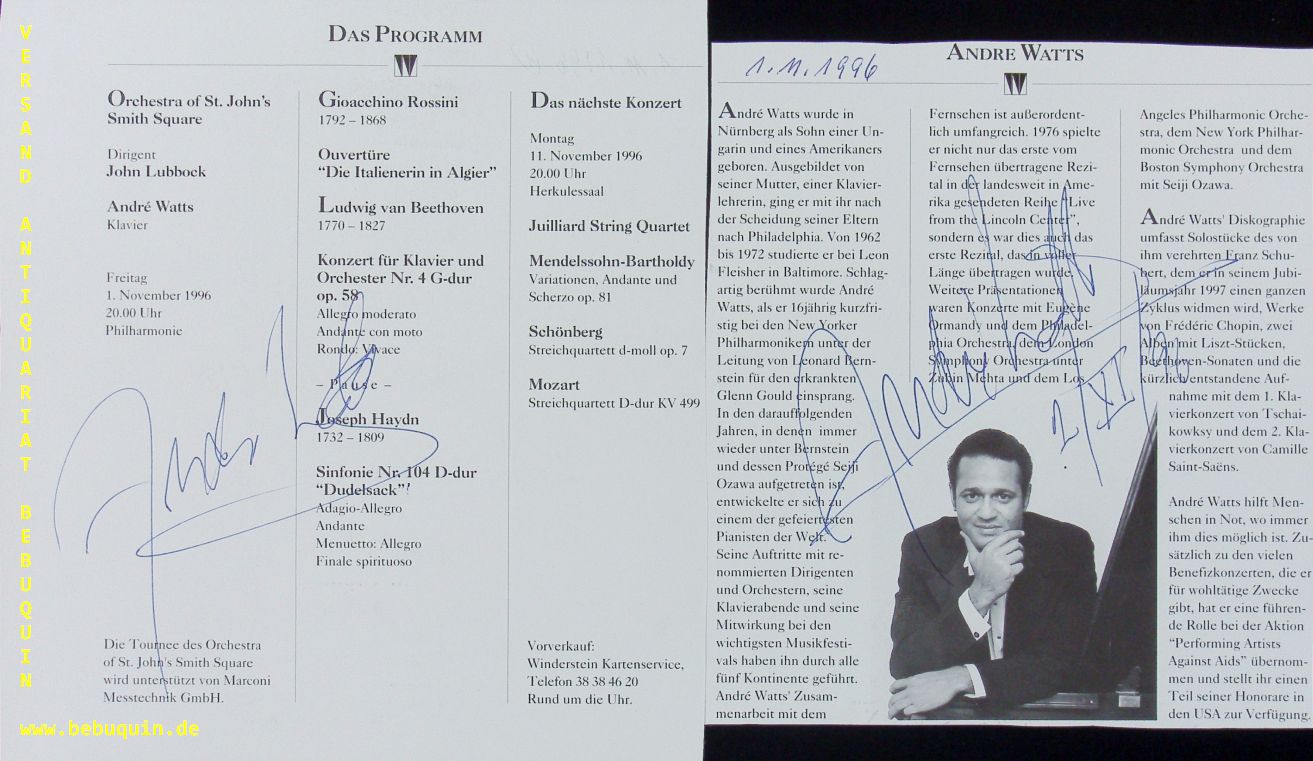 VERSAND ANTIQUARIAT BEBUQUIN
www.bebuquin.de
DAS PROGRAMM
Orchestra of St. John's
Smith Square
Dirigent
John Lubbock
André Watts
Klavier
Freitag
1. November 1996
20.00 Uhr
Philharmonie
Die Tournee des Orchestra
of St. John's Smith Square
wird unterstützt von Marconi
Messtechnik GmbH.
Gioacchino Rossini
1792 – 1868
Ouvertüre
“Die Italienerin in Algier”
Ludwig van Beethoven
1770 – 1827
Konzert für Klavier und
Orchester Nr. 4 G-dur
op. 58
Allegro moderato
Andante con moto
Rondo: Vivace
– Pause –
Joseph Haydn
1732 – 1809
Sinfonie Nr. 104 D-dur
“Dudelsack”
Adagio-Allegro
Andante
Menuetto: Allegro
Finale spirituoso
Das nächste Konzert
Montag
11. November 1996
20.00 Uhr
Herkulessaal
Juilliard String Quartet
Mendelssohn-Bartholdy
Variationen, Andante und
Scherzo op. 81
Schönberg
Streichquartett d-moll op. 7
Mozart
Streichquartett D-dur KV 499
Vorverkauf:
Winderstein Kartenservice,
Telefon 38 38 46 20
Rund um die Uhr.
1.11.1996
ANDRE WATTS
André Watts wurde in
Nürnberg als Sohn einer Un-
garin und eines Amerikaners
geboren. Ausgebildet von
seiner Mutter, einer Klavier-
lehrerin, ging er mit ihr nach
der Scheidung seiner Eltern
nach Philadelphia. Von 1962
bis 1972 studierte er bei Leon
Fleisher in Baltimore. Schlag-
artig berühmt wurde André
Watts, als er 16jährig kurzfri-
stig bei den New Yorker
Philharmonikern unter der
Leitung von Leonard Bern-
stein für den erkrankten
Glenn Gould einsprang.
In den darauffolgenden
Jahren, in denen immer
wieder unter Bernstein
und dessen Protégé Seiji
Ozawa aufgetreten ist,
entwickelte er sich zu
einem der gefeiertesten
Pianisten der Welt.
Seine Auftritte mit re-
nommierten Dirigenten
und Orchestern, seine
Klavierabende und seine
Mitwirkung bei den
wichtigsten Musikfesti-
vals haben ihn durch alle
fünf Kontinente geführt.
André Watts' Zusam-
menarbeit mit dem
Fernsehen ist außerordent-
lich umfangreich. 1976 spielte
er nicht nur das erste vom
Fernsehen übertragene Rezi-
tal in der landesweit in Ame-
rika gesendeten Reihe “Live
from the Lincoln Center”,
sondern es war dies auch das
erste Rezital, das in voller
Länge übertragen wurde.
Weitere Präsentationen
waren Konzerte mit Eugène
Ormandy und dem Philadel-
phia Orchestra, dem London
Symphony Orchestra unter
Zubin Mehta und dem Los
Angeles Philharmonic Orche-
stra, dem New York Philhar-
monic Orchestra und dem
Boston Symphony Orchestra
mit Seiji Ozawa.
André Watts' Diskographie
umfasst Solostücke des von
ihm verehrten Franz Schu-
bert, dem er in seinem Jubi-
läumsjahr 1997 einen ganzen
Zyklus widmen wird, Werke
von Frédéric Chopin, zwei
Alben mit Liszt-Stücken,
Beethoven-Sonaten und die
kürzlich entstandene Auf-
nahme mit dem 1. Kla-
vierkonzert von Tschai-
kowsky und dem 2. Kla-
vierkonzert von Camille
Saint-Saëns.
André Watts hilft Men-
schen in Not, wo immer
ihm dies möglich ist. Zu-
sätzlich zu den vielen
Benefizkonzerten, die er
für wohltätige Zwecke
gibt, hat er eine führen-
de Rolle bei der Aktion
“Performing Artists
Against Aids” übernom-
men und stellt ihr einen
Teil seiner Honorare in
den USA zur Verfügung.
André Watts